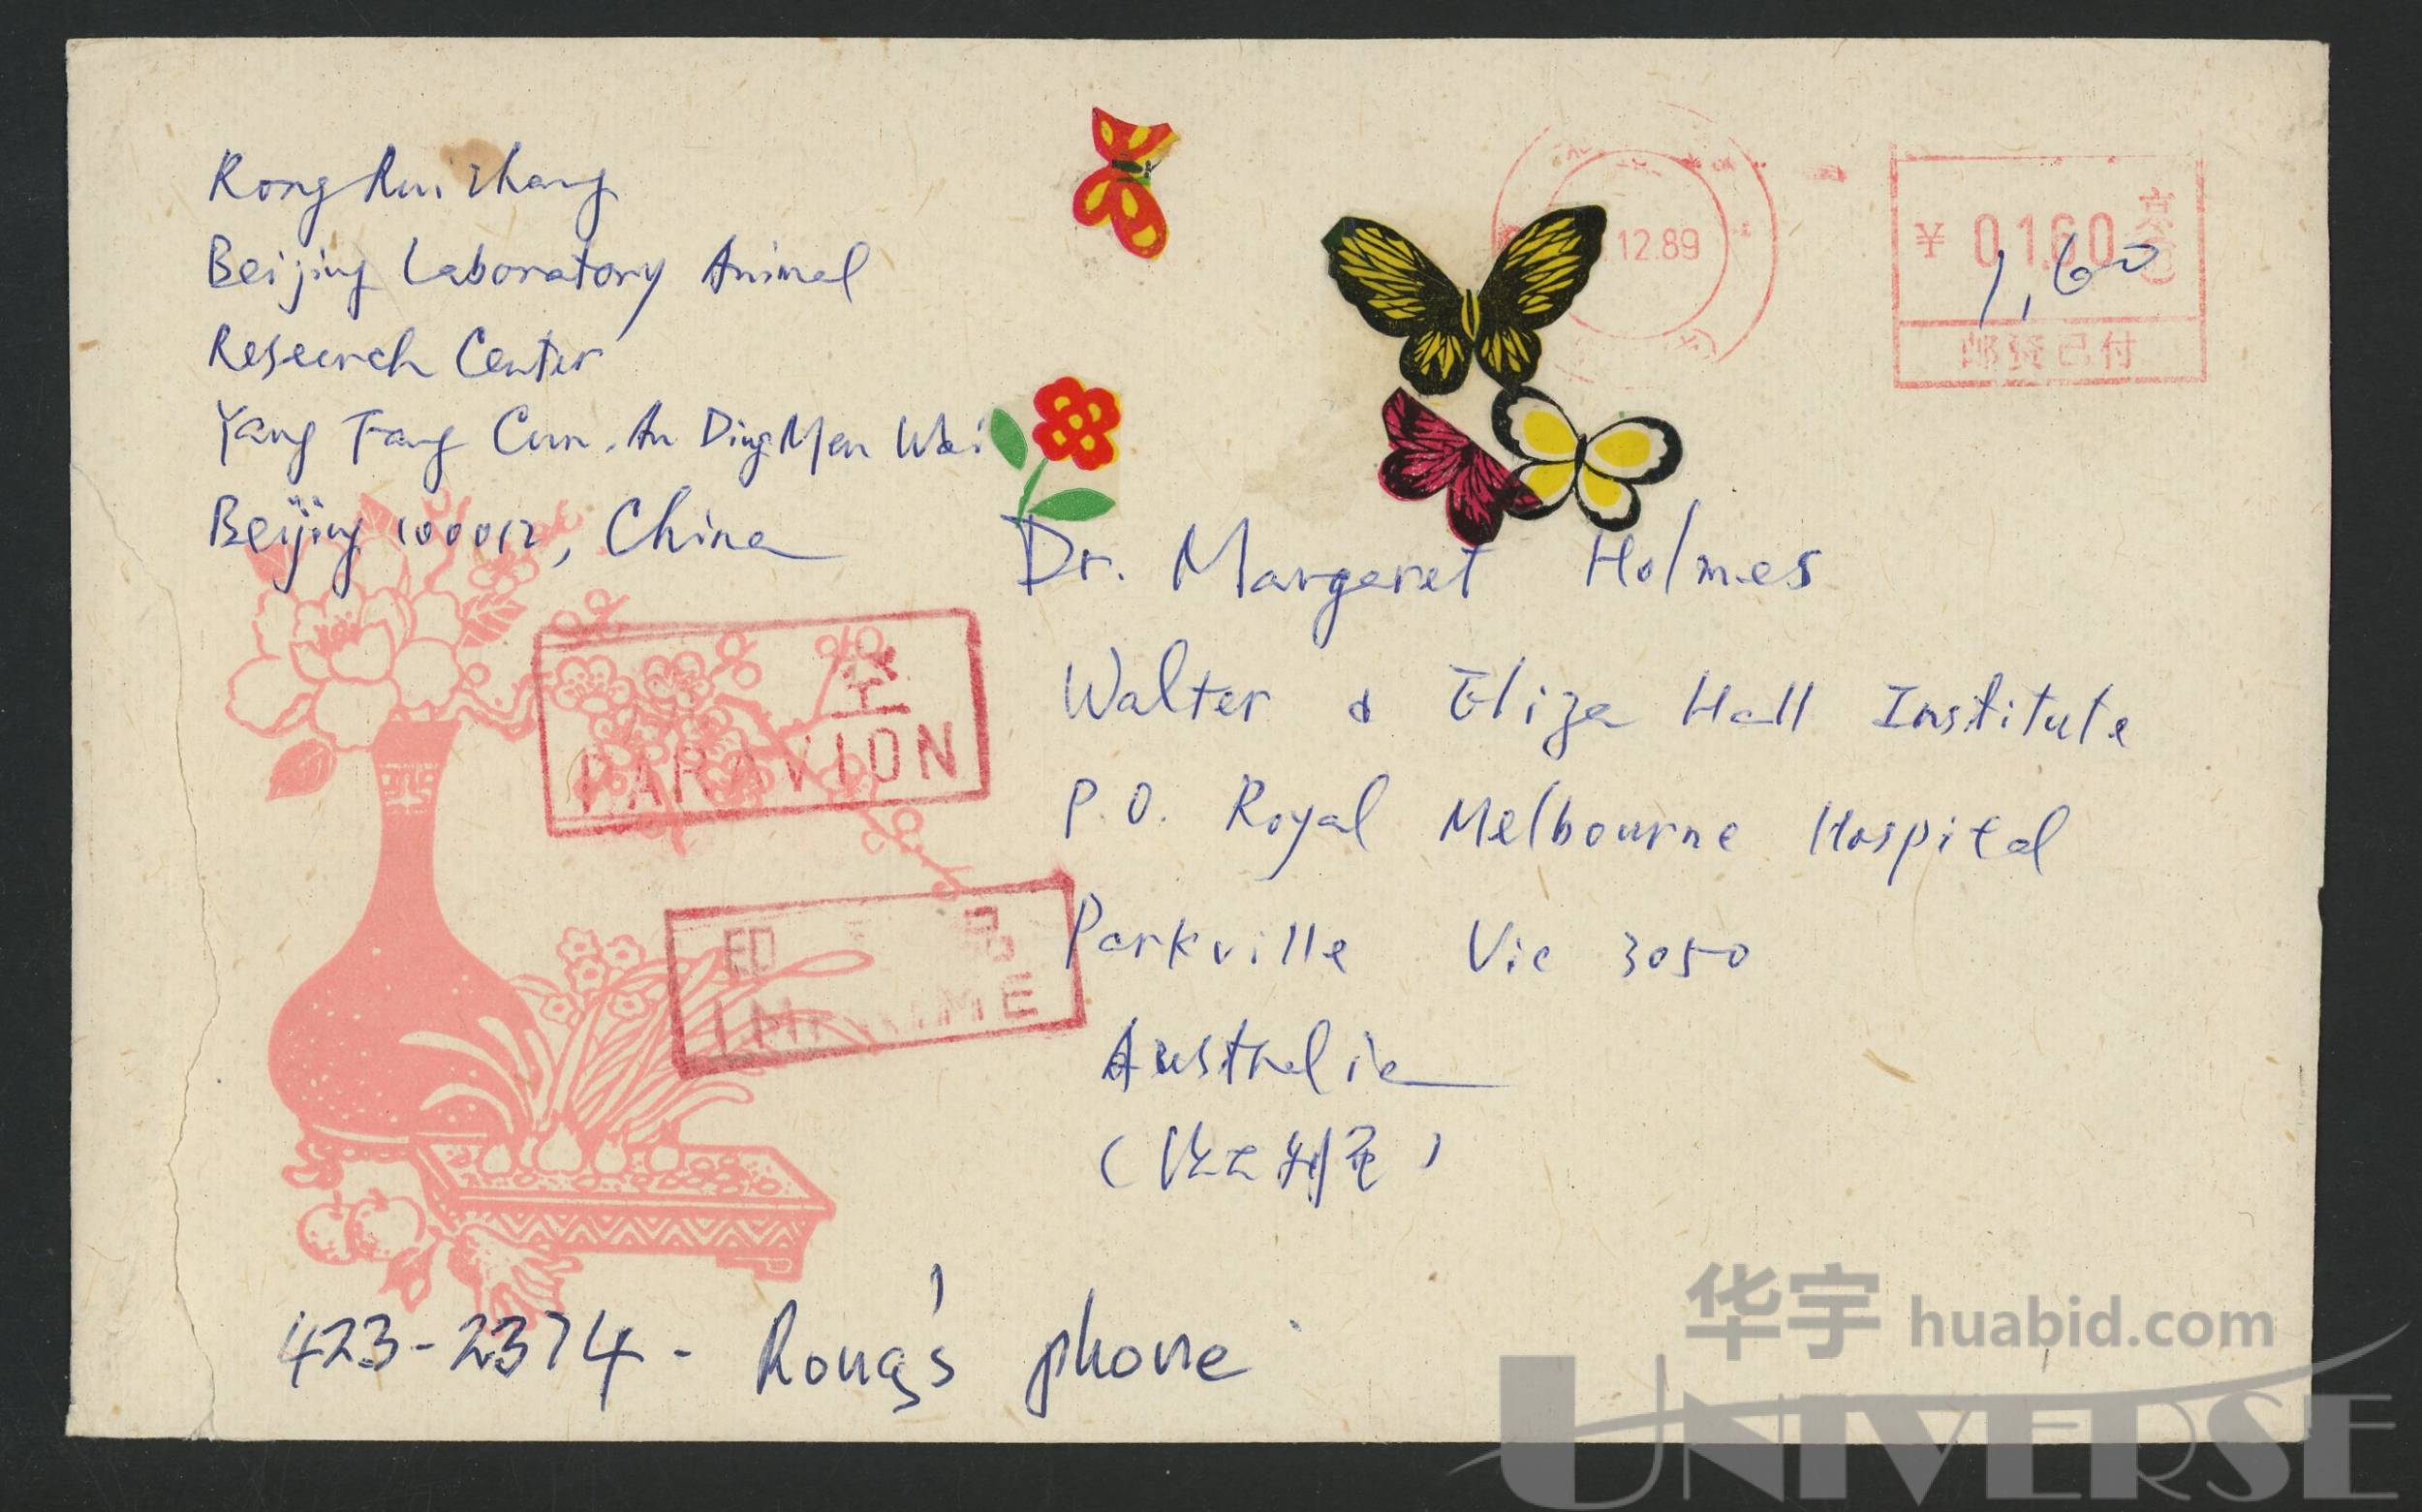 Rong Rui Zhang
Beijing Laboratory Animal
Research Center
Yang Fang Cun. An Ding Men Wai
Beijing 100012, China
12.89
¥ 01.60
1,60
邮资已付
Dr. Margaret Holmes
Walter & Eliza Hall Institute
P.O. Royal Melbourne Hospital
Parkville Vic 3050
Australia
PAR AVION
IMPRIME
423-2374 - Rong's phone
华宇 huabid.com
UNIVERSE